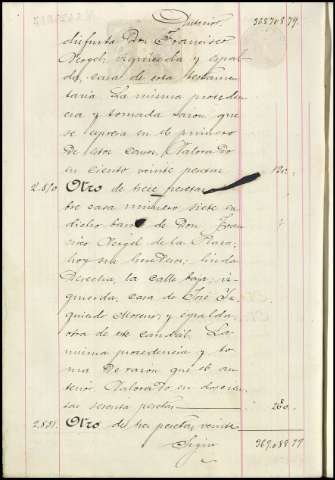 Anterior 36370879.
difunta Don Francisco
Vergel, izquierda y espal-
da, casa de esta testamen-
taria. La misma proceden-
cia y tomada razon que
se expresa en el primero
de estos casos. Valorado
en ciento veinte pesetas 120.
2.810. Otro de trece pesetas
sobre casa número siete en
dicho barrio de Don Fran-
cisco Vergel de la Plaza,
hoy sus herederos; linda
derecha, la calle baja; iz-
quierda, casa de José Iz-
quierdo Moreno; y espalda,
otra de este caudal. La
misma procedencia y to-
ma de razon que el an-
terior. Valorado en doscien-
tas sesenta pesetas 260.
2.811. Otro de tres pesetas, veinte
Sigue